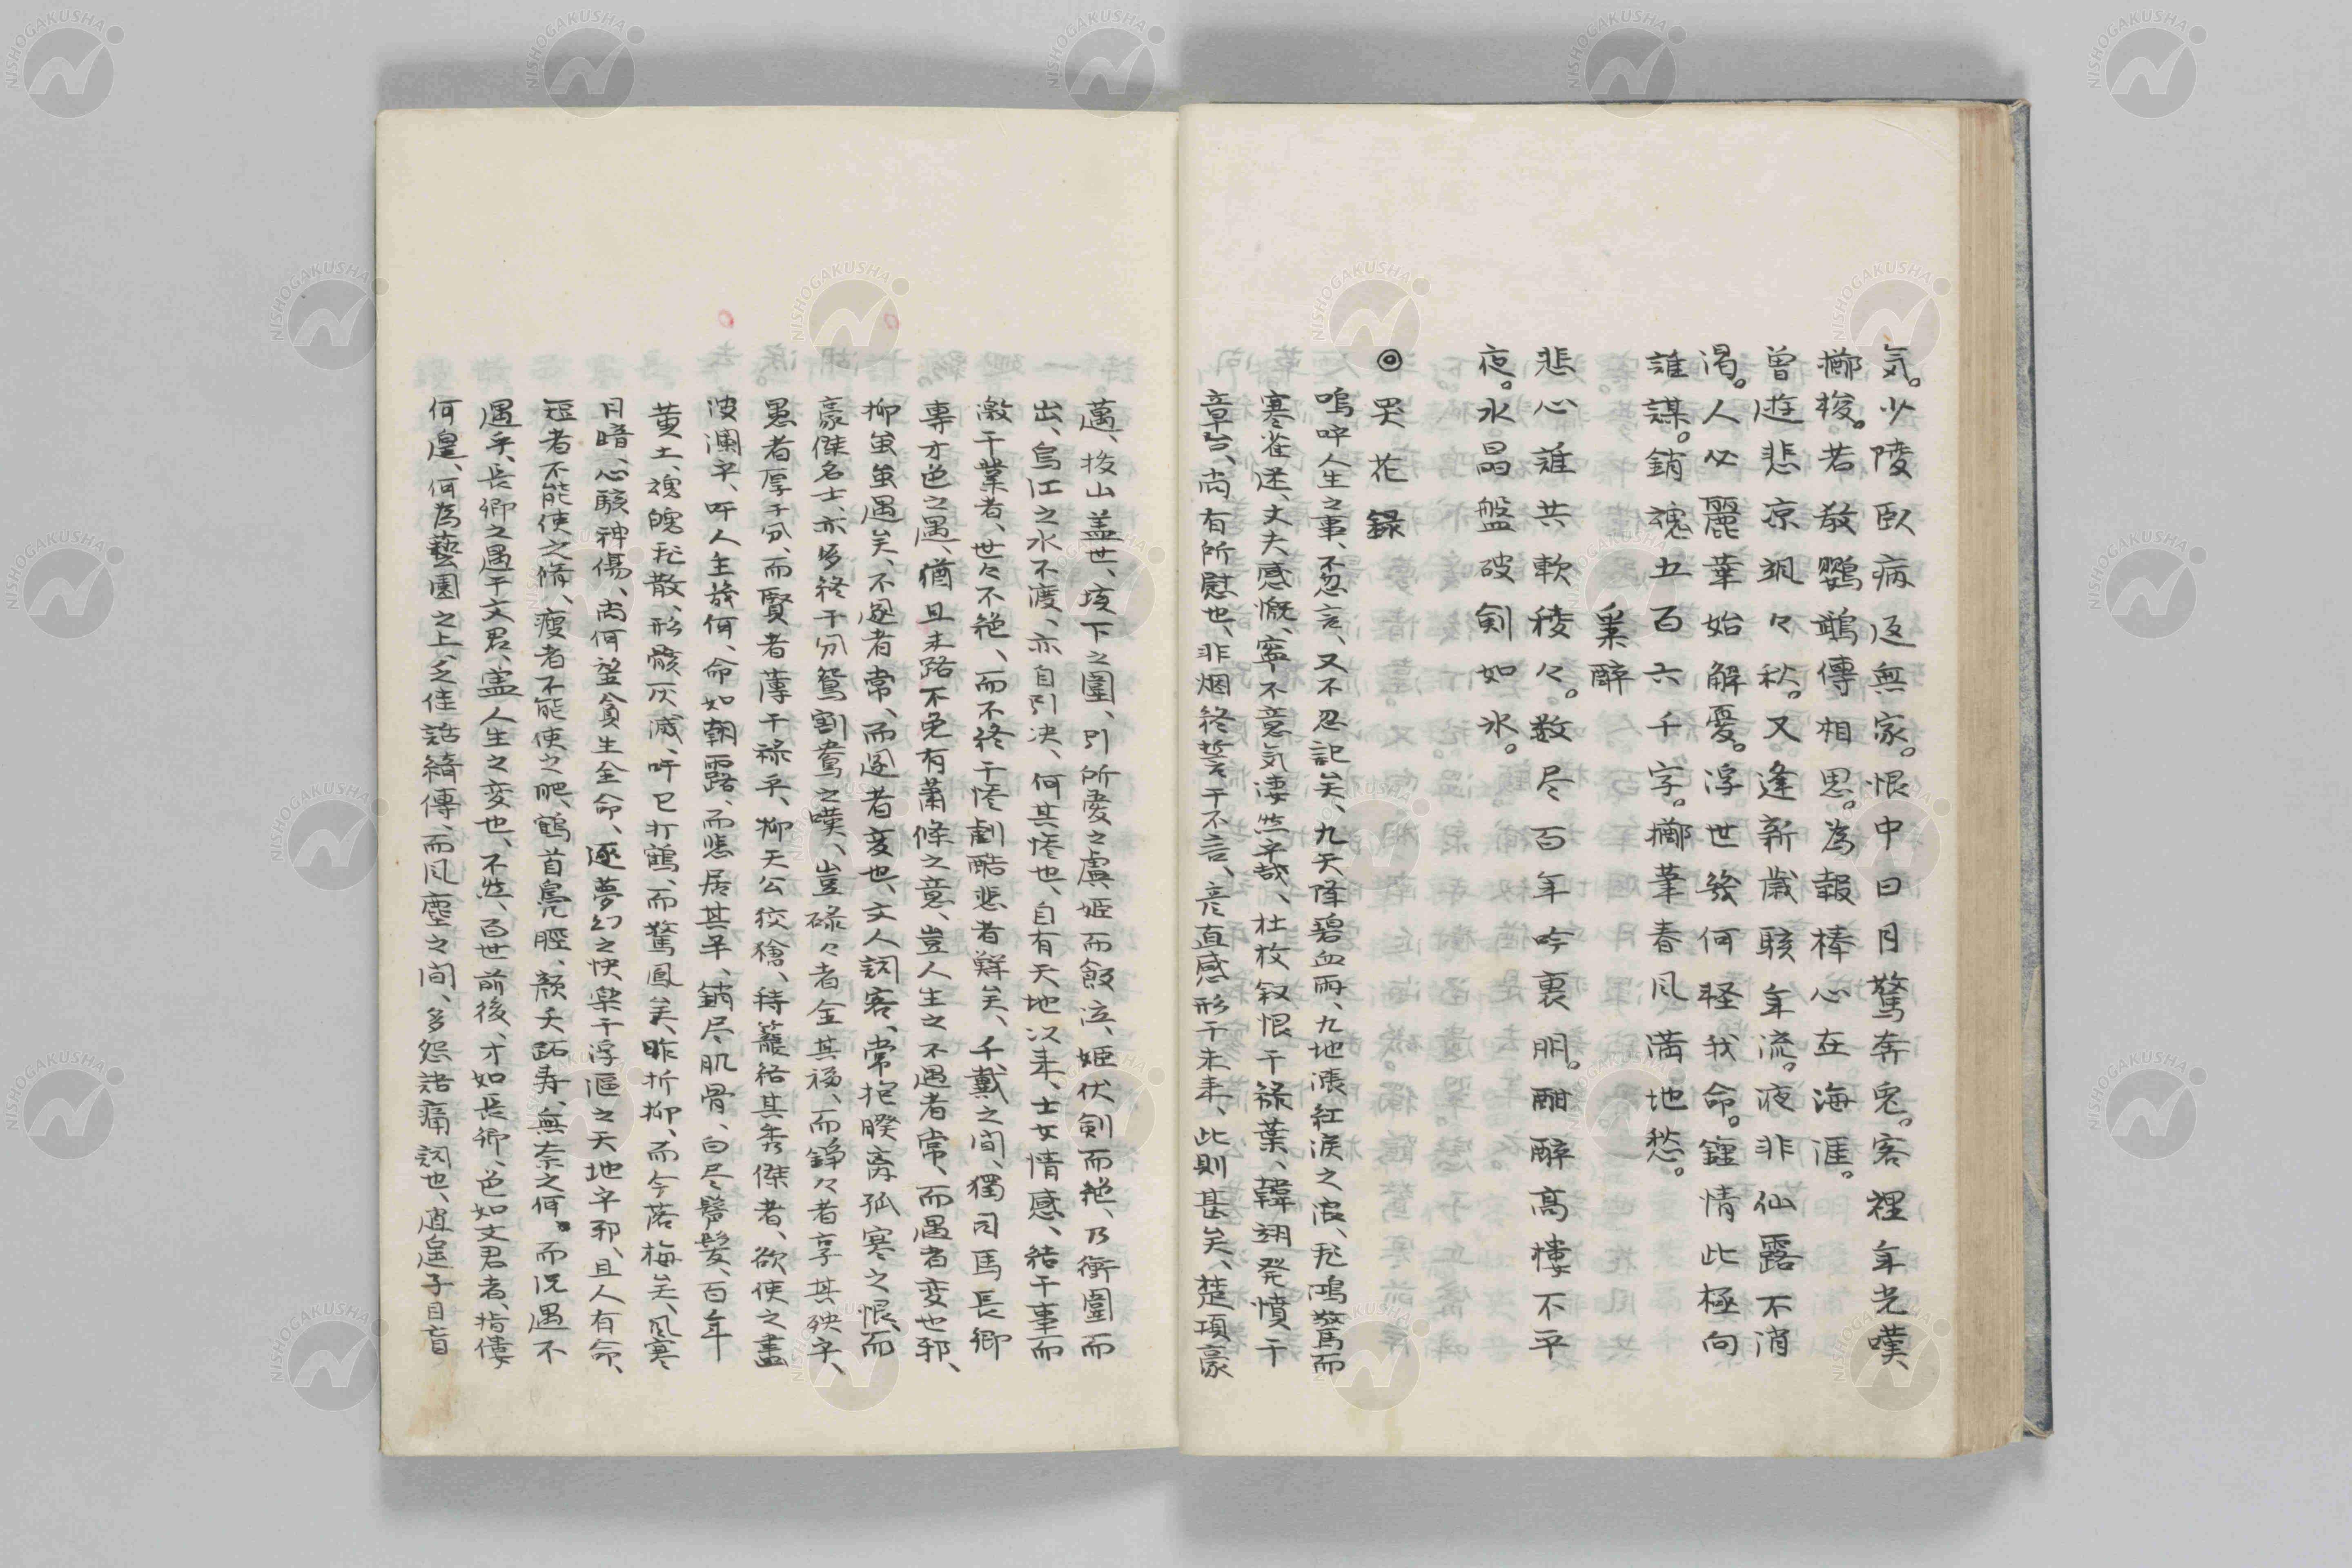 気。少陵臥病返無家。恨中日月驚奔兎。客裡年光嘆
擲梭。若教鸚鵡傳相思。為報棒心在海涯。
曽遊悲凉颯々秋。又逢新歳駭年流。液非仙露不消
渇。人必麗華始解憂。浮世幾何軽我命。鍾情此極向
誰謀。銷魂五百六千字。擲筆春風満地愁。
買醉
悲心誰共軟稜々。数尽百年吟裏朋。酣醉高樓不平
夜。水晶盤破剣如氷。
◎哭花録
嗚呼人生之事、不忍言、又不忍記矣、九天降碧血雨、九地漲紅涙之浪、飛鴻驚而
寒雀迷、丈夫感慨、寧不意気凄然乎哉、杜牧叙恨于緑葉、韓翃発憤于
章台、尚有所慰也、非烟終誓于不言、彦直感形于未来、此則甚矣、楚項豪
邁、抜山盖世、垓下之圍、引所愛之虞姫而飲泣、姫伏剣而艶、乃衝圍而
出、烏江之水不渡、亦自引决、何其惨也、自有天地以来、士女情感、結于事而
激于業者、世々不絶、而不終于惨劇酷悲者鮮矣、千戴之间、獨司馬長卿
専才色之遇、猶且末路不免有蕭條之意、豈人生之不遇者常、而遇者変也邪、
抑蚩蚩遇矣、不遇者常、而遇者変也、文人詞客、常抱睽离孤寒之恨、而
豪傑名士、亦多終于分鴛割鴦之嘆、豈碌々者全其福、而錚々者享其殃乎、
愚者厚于分、而賢者薄于禄乎、抑天公狡獪、待籠絡其秀傑者、欲使之盡
波瀾乎、吁人生幾何、命如朝露、而悲居其半、銷尽肌骨、白尽鬢髪、百年
黄土、魂魄飛散、形骸灰滅、吁已打鶴、而驚鳳矣、昨折抑、而今落梅矣、風寒
月暗、心駭神傷、尚何望貪生全命、逐夢幻之快楽于浮漚之天地乎邪、且人有命、
短者不能使之脩、瘦者不能使之肥、鶴首鳧脛、顔夭跖寿、無奈之何。而况遇不
遇乎、長卿之遇于文君、盖人生之変也、不然、百世前後、才如長卿、色如文君者、指僂
何遑、何為藝園之上、乏佳話綺傳、而風塵之间、多怨話痛詞也、逍遥子目盲